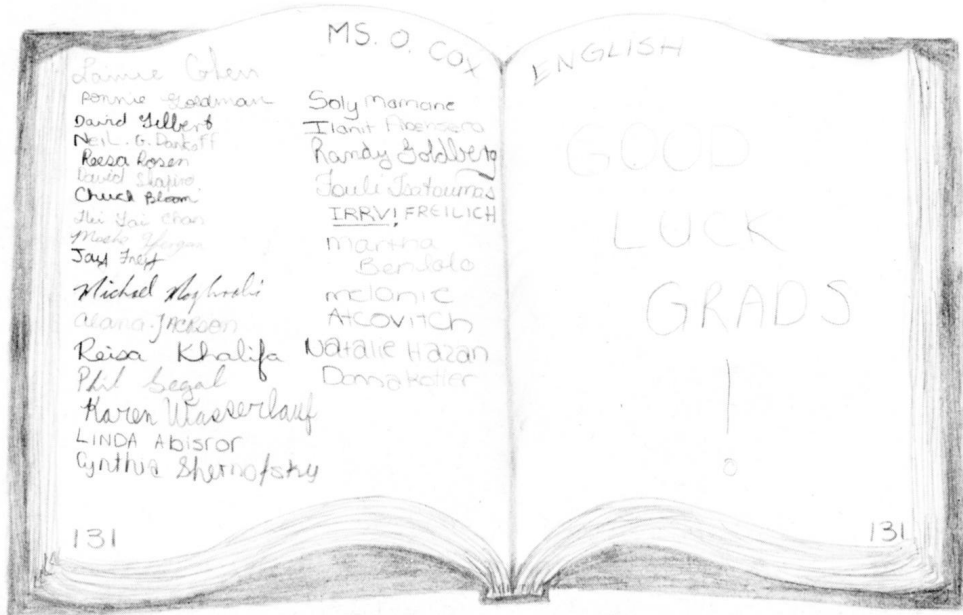 MS. O. COX
Lainie Cohen
Ronnie Goldman
David Gilbert
NEIL. G. Dankoff
Reesa Rosen
David Shapiro
Chuck Bloom
Chan
Moshe
Jay
Michael
Alana JACKSON
Reisa Khalifa
Phil Segal
Karen Wasserlauf
LINDA Abisror
Cynthia Shernofsky
131
Soly Mamane
Ilanit Abensera
Randy Goldberg
Toule
IRRV! FREILICH
Martha
Bendalo
melanie
Atcovitch
Natalie Hazan
Donna Kotler
ENGLISH
GOOD
LUCK
GRADS
!
131